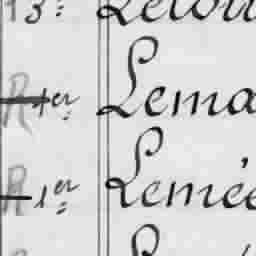 13: Letou
R 1er Lema
R 1er Lemée